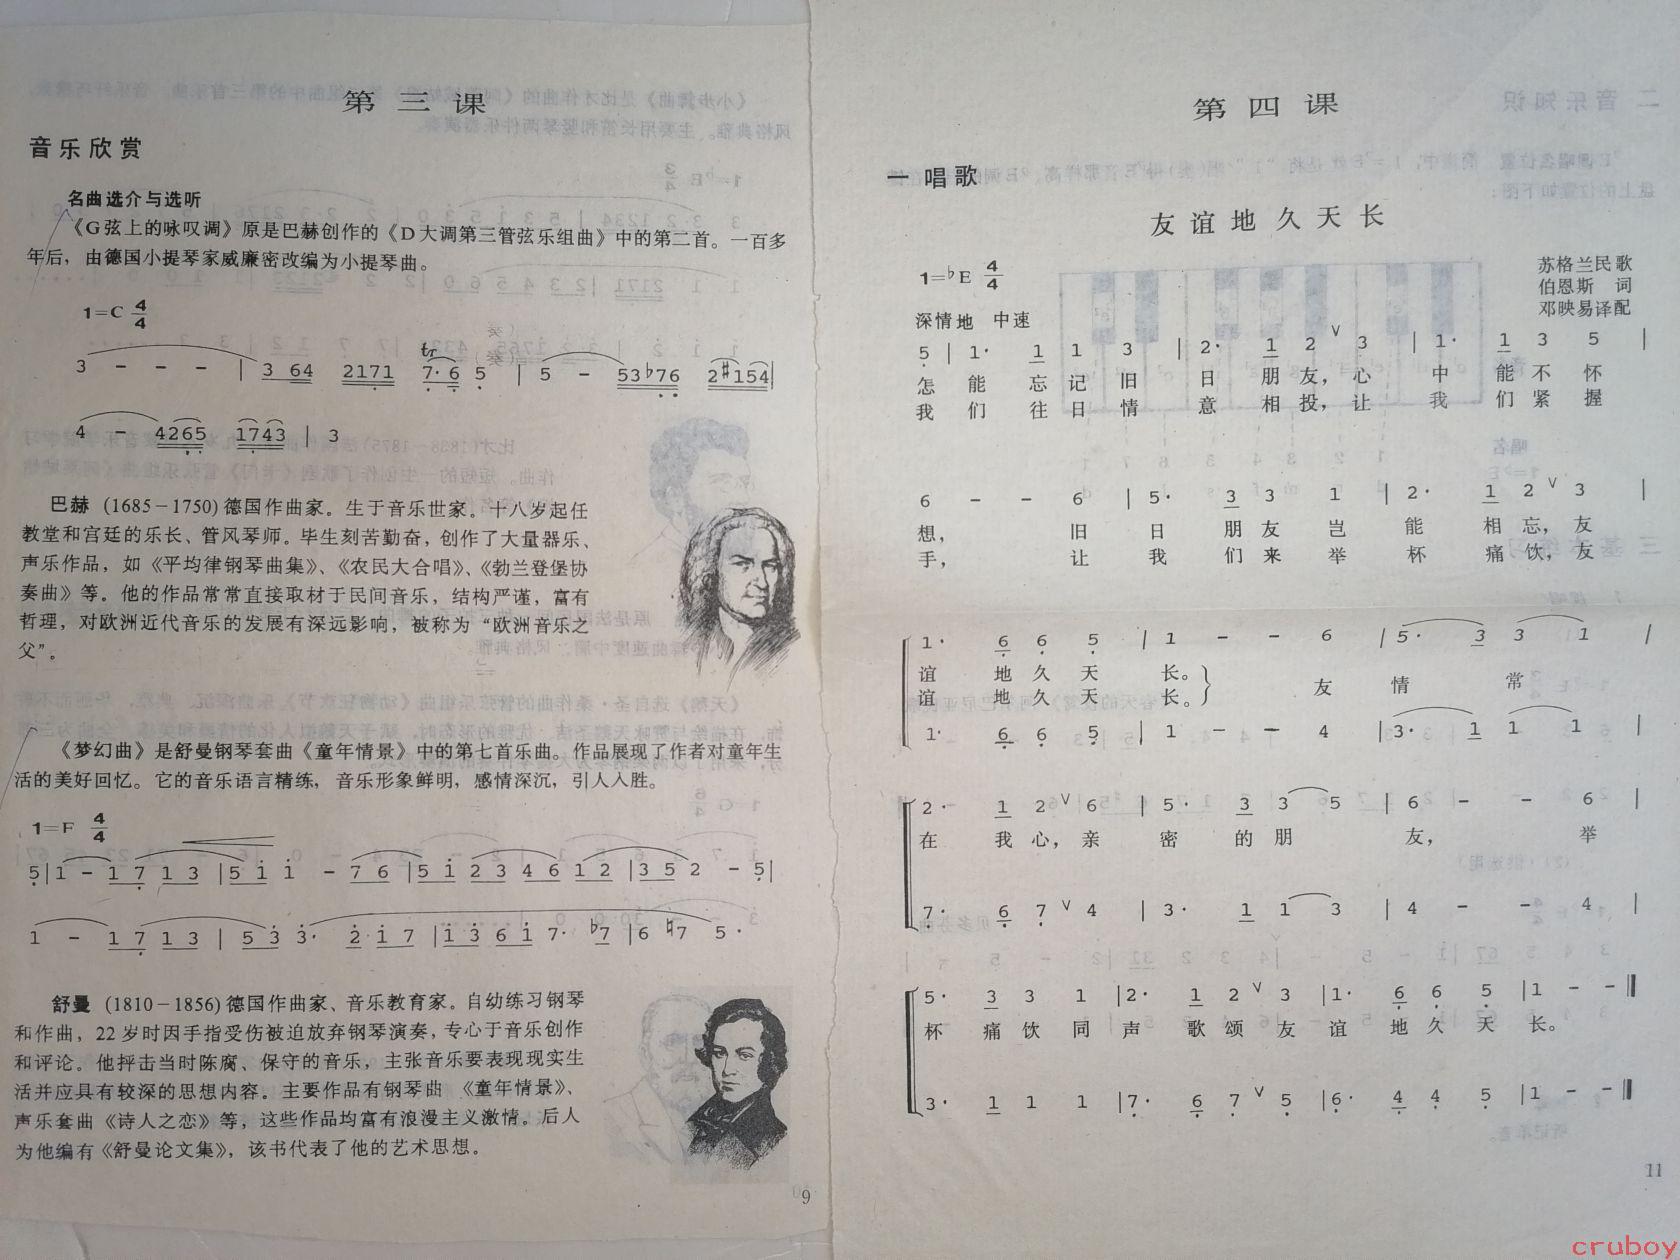 第三课
音乐欣赏
名曲选介与选听
《G弦上的咏叹调》原是巴赫创作的《D大调第三管弦乐组曲》中的第二首。一百多
年后，由德国小提琴家威廉密改编为小提琴曲。
1=C 4/4
3 - - - | 3 64 2171 7·6 5 | 5 - 53♭76 2♯154|
tr
4 - 4265 1743 | 3
巴赫 (1685－1750)德国作曲家。生于音乐世家。十八岁起任
教堂和宫廷的乐长、管风琴师。毕生刻苦勤奋，创作了大量器乐、
声乐作品，如《平均律钢琴曲集》、《农民大合唱》、《勃兰登堡协
奏曲》等。他的作品常常直接取材于民间音乐，结构严谨，富有
哲理，对欧洲近代音乐的发展有深远影响，被称为“欧洲音乐之
父”。
《梦幻曲》是舒曼钢琴套曲《童年情景》中的第七首乐曲。作品展现了作者对童年生
活的美好回忆。它的音乐语言精练，音乐形象鲜明，感情深沉，引人入胜。
1=F 4/4
5|1 - 1 7 1 3 |5 i i - 7 6 |5 i 2 3 4 6 1 2 |3 5 2 - 5|
1 - 1 7 1 3 | 5 3 3· 2·i 7 |i 3 6 i 7· ♭7 |6 ♮7 5·
舒曼 (1810－1856)德国作曲家、音乐教育家。自幼练习钢琴
和作曲，22岁时因手指受伤被迫放弃钢琴演奏，专心于音乐创作
和评论。他抨击当时陈腐、保守的音乐，主张音乐要表现现实生
活并应具有较深的思想内容。主要作品有钢琴曲 《童年情景》、
声乐套曲《诗人之恋》等，这些作品均富有浪漫主义激情。后人
为他编有《舒曼论文集》，该书代表了他的艺术思想。
9
第四课
一 唱歌
友谊地久天长
1=♭E 4/4
苏格兰民歌
伯恩斯 词
邓映易译配
深情地 中速
5 | 1· 1 1 3 | 2· 1 2 ∨ 3 | 1· 1 3 5 |
怎 能 忘记旧 日 朋友，心 中 能不怀
我 们 往日情 意 相投，让 我 们紧握
6 - - 6 | 5· 3 3 1 | 2· 1 2 ∨ 3 |
想， 旧 日 朋友岂 能 相忘，友
手， 让 我 们来举 杯 痛饮，友
1· 6 6 5 | 1 - - 6 | 5· 3 3 1 |
谊 地久天 长。
谊 地久天 长。
友 情 常
1· 6 6 5 | 1 - - 4 | 3· 1 1 1 |
2· 1 2 ∨ 6 | 5· 3 3 5 | 6 - - 6 |
在 我心，亲 密 的朋 友， 举
7· 6 7 ∨ 4 | 3· 1 1 3 | 4 - - 4 |
5· 3 3 1 |2· 1 2 ∨ 3 |1· 6 6 5 |1 - -‖
杯 痛饮同 声 歌颂友 谊 地久天 长。
3· 1 1 1 |7· 6 7 ∨ 5 |6· 4 4 5 |1 - -‖
11
cruboy